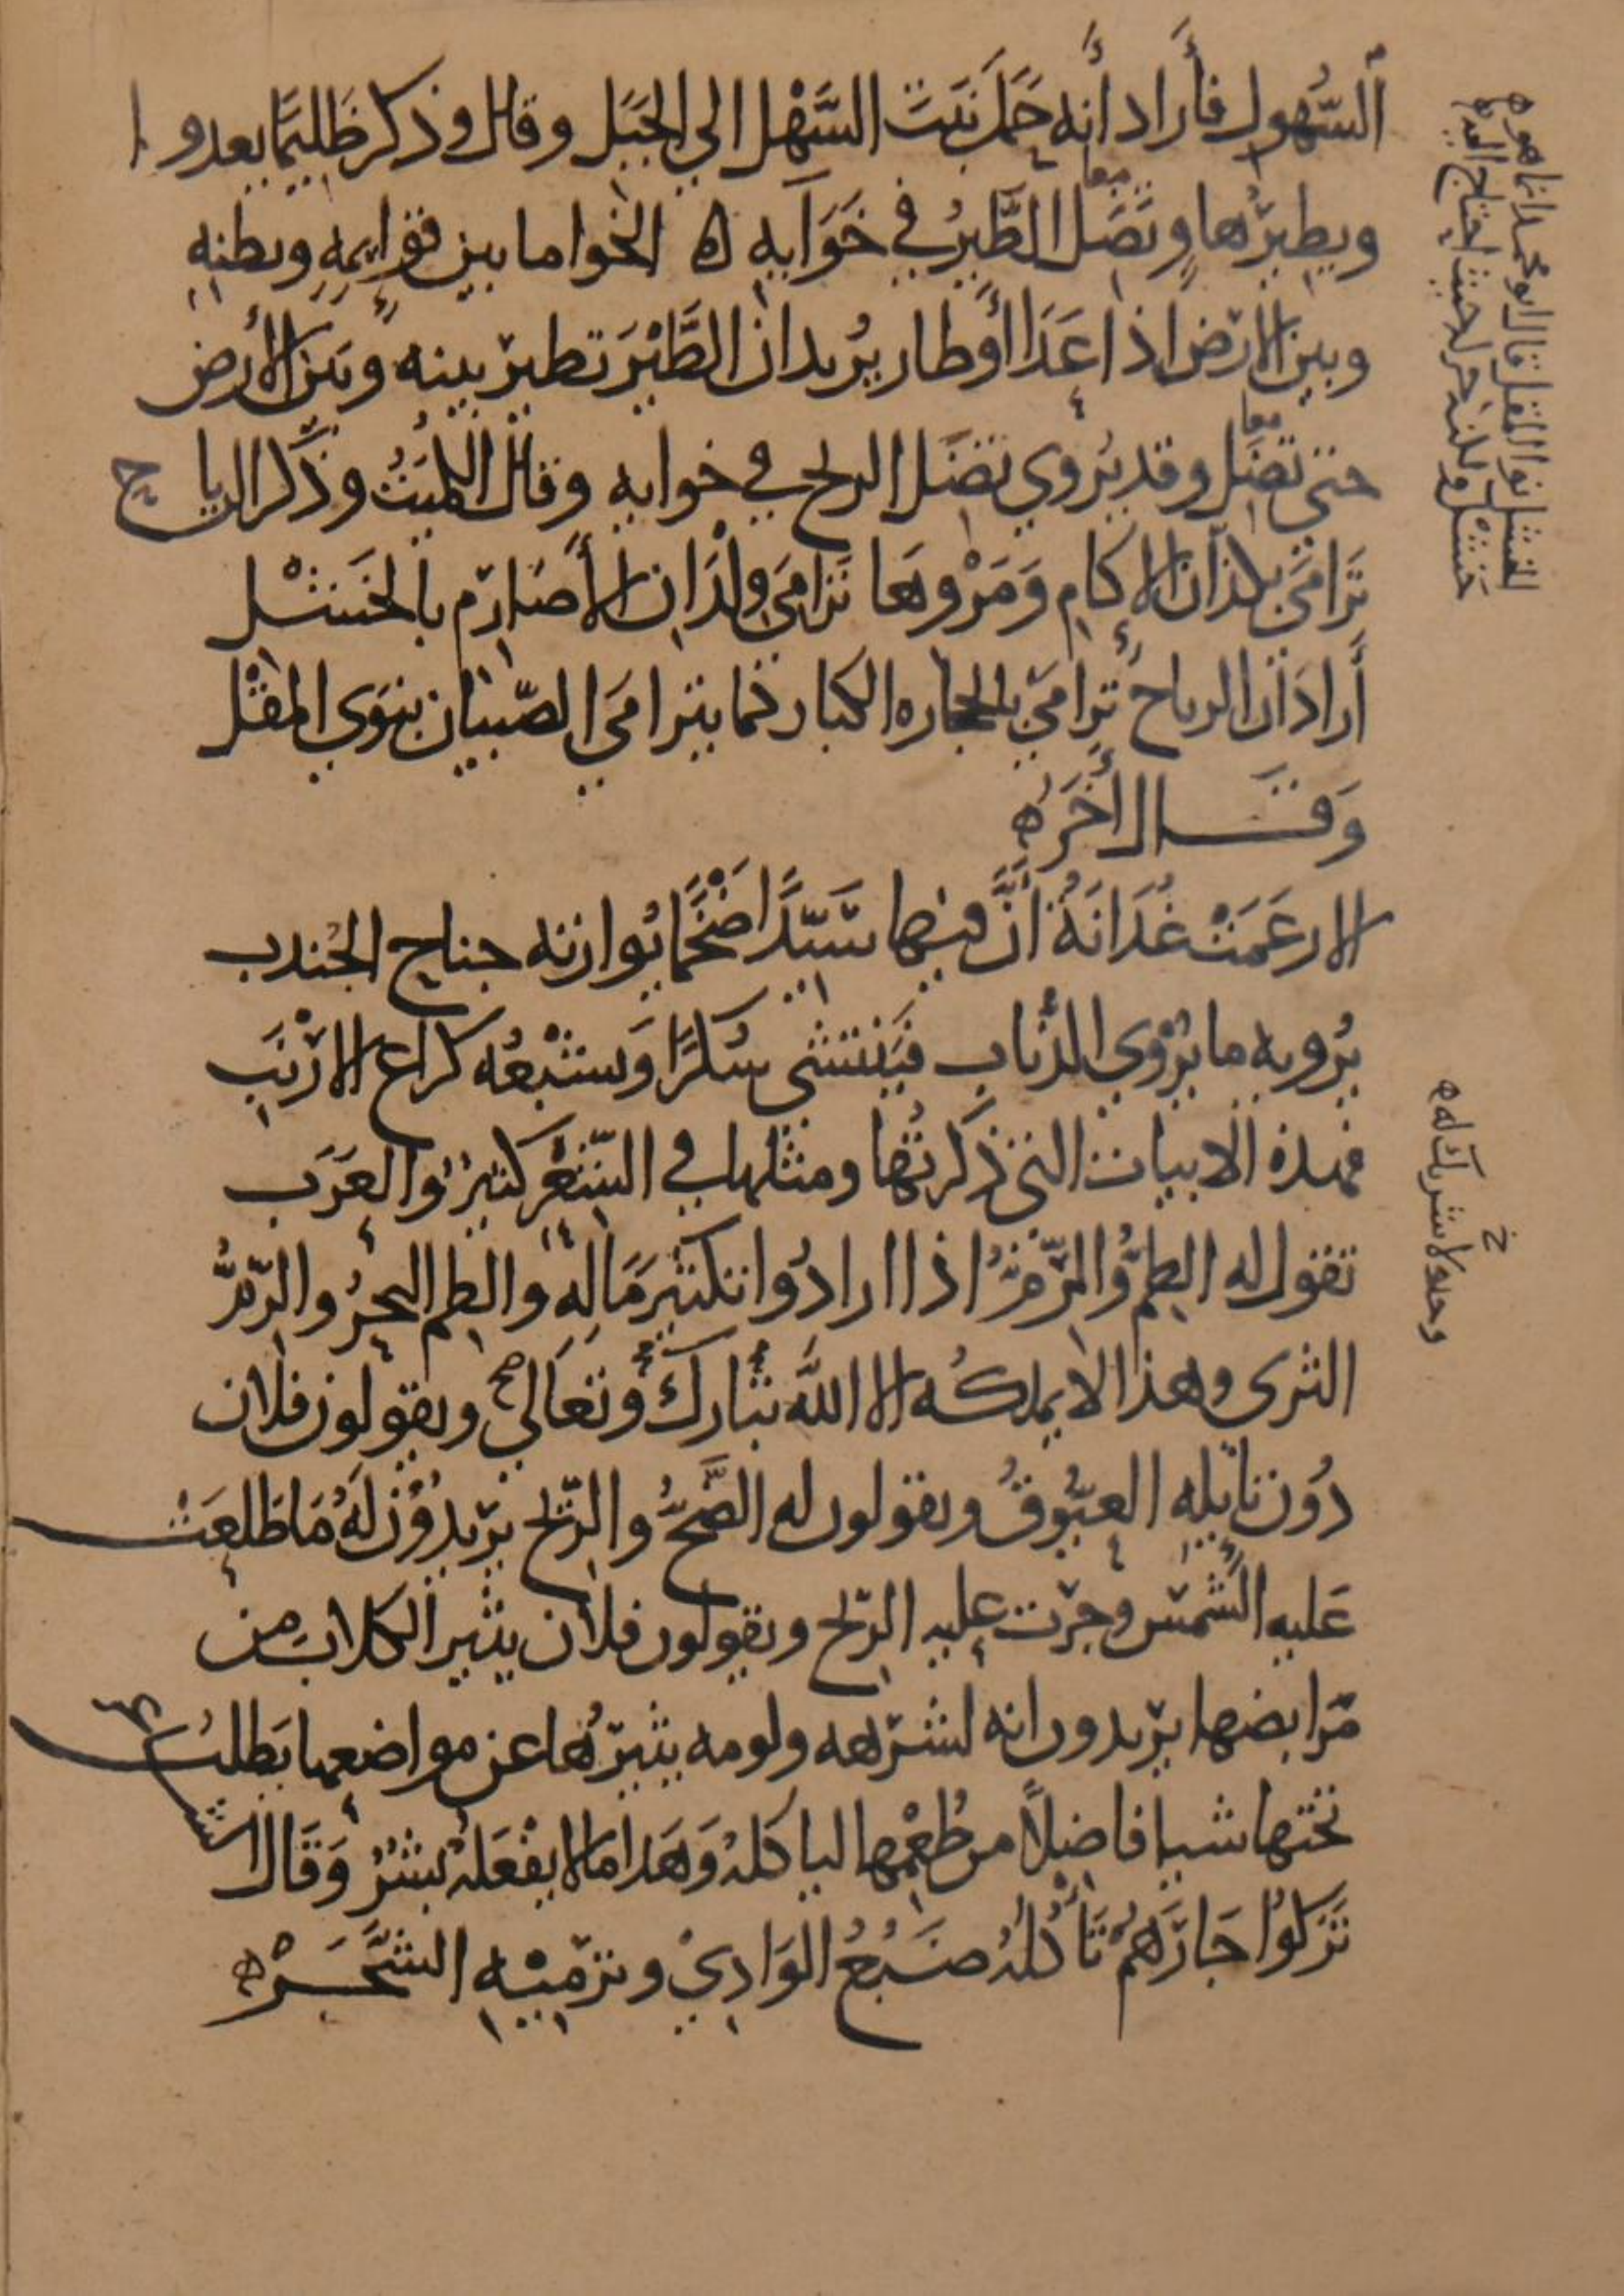 السُّهول فأراد أنه حَمَلَ نَبتَ السَّهْل إلي الجَبَل وقال وذكر ظَليمًا يعدو
ويطيرُ هاوٍ وتَضِلّ الطَّيرُ في خَوَايهِ ه الخوا ما بين قوايمِهِ وبطنِهِ
وبين الارض اذا عَدَا أو طار يُريد ان الطَّيْرَ تطير بينه وبين الأرض
حتى تضِلّ وقد يُروي تضِل الريح في خوايهِ وقال الكميتُ وذكَر الرياح
تَرَامَي بكذان الإكامِ ومَرْوِهَا تَرَامِيَ ولْدَانِ الأَصَارِم بالخَشْل
أرادَ ان الرياح تَرامَي بالحجاره الكبار كما يترامَي الصّبيان بنوَي المقْل
وَقَال أخَر ه
الا زعَمَتْ غُدَانَةُ أنَّ فيها سَيّدًا ضَخْمًا يُوازنه جناح الجُندب
يُرويه ما يُرْوي الذُّباب فيَنتشي سُكرًا وَتشْبعُه كراع الارْنَبِ
فهذه الابيات التي ذكرتُها ومثلها في الشّعْر كثيرٌ والعَرَب
تقول له الطِمُّ والرِّمُّ اذا ارادُوا تكثيرَ مَالِهِ والطِم البحرُ والرِّمُّ
الثرى وهذا لا يملكُه الا اللَّه تبارك وتعَالي صح ويقولون فلان
دُون نايلِهِ العيُّوقُ ويقولون له الضِّحُّ والرّيح يريدُون لَهُ مَا طَلعَتْ
عَليهِ الشمس وجرَت عليه الرّيح ويقولون فلان يثير الكلابَ من
مَرابضها يريدون انه لشرَهه ولومه يثيرُها عن مواضعها يَطلبُ
تحتها شيا فاضِلاً من طُعْمِها لياكلهُ وَهَذا ما لا يفْعَلهُ بشرٌ وَقَال الشاعر
تَرَكُوا جَارَهُمُ تَأكُلُهُ ضَبُعُ الوَادِي وترْمِيْهِ الشَّجَرْ ه
المقل قال ابو محمد انما هو
خَشْل ولكنه حركه حيث احتاج اليه
وحده لا شريك له ه
خ